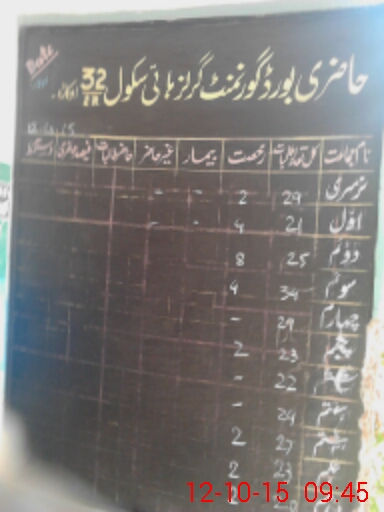 Date
حاضری بورڈ گورنمنٹ گرلز ہائی سکول 32/2R اوکاڑہ
نام جماعت کل تعداد طالبات رخصت بیمار غیر حاضر حاضر طالبات فیصد حاضری دستخط
نرسری 29 2 - -
اوّل 21 4 - -
دوم 25 8
سوم 34 4
چہارم 29 -
پنجم 23 2
ششم 22 -
ہفتم 29 -
ہشتم 27 2
نہم 23 2
12-10-15 09:45